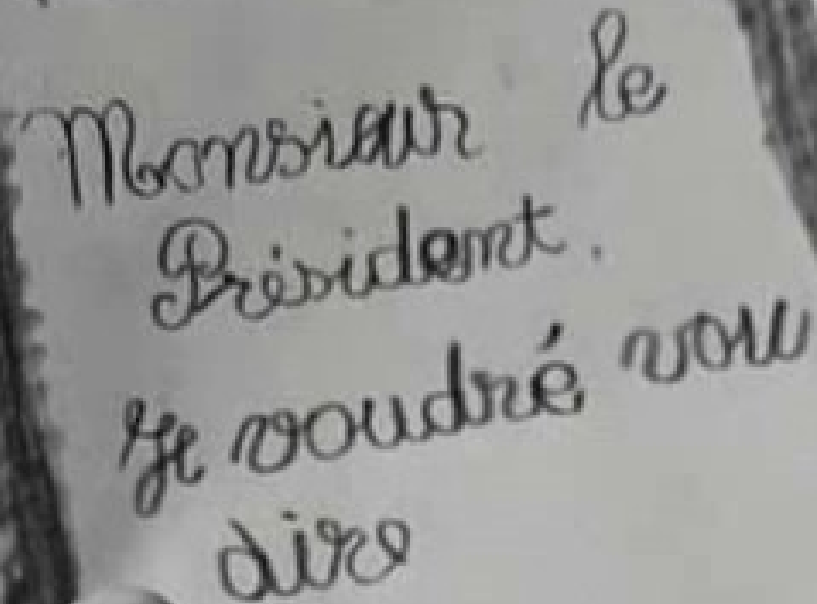 Monsieur le
Président.
Je voudré vou
dire